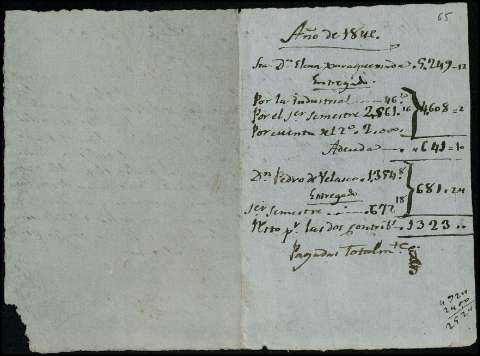 65
Año de 1841.
Sra Dª Elena 5.249=12
Entregado
Por la industrial 46.
Por el 1er semestre 2,561.16 4608=2
Por cuenta del 2º. 2.000..
Adeuda 641=10
Dn Pedro de Velasco. 1354.8
Entregado 681.24
1er semestre 672 18
Resto pr las dos contribs. 1323..
Pagadas Totalmte
4924
2400
2524